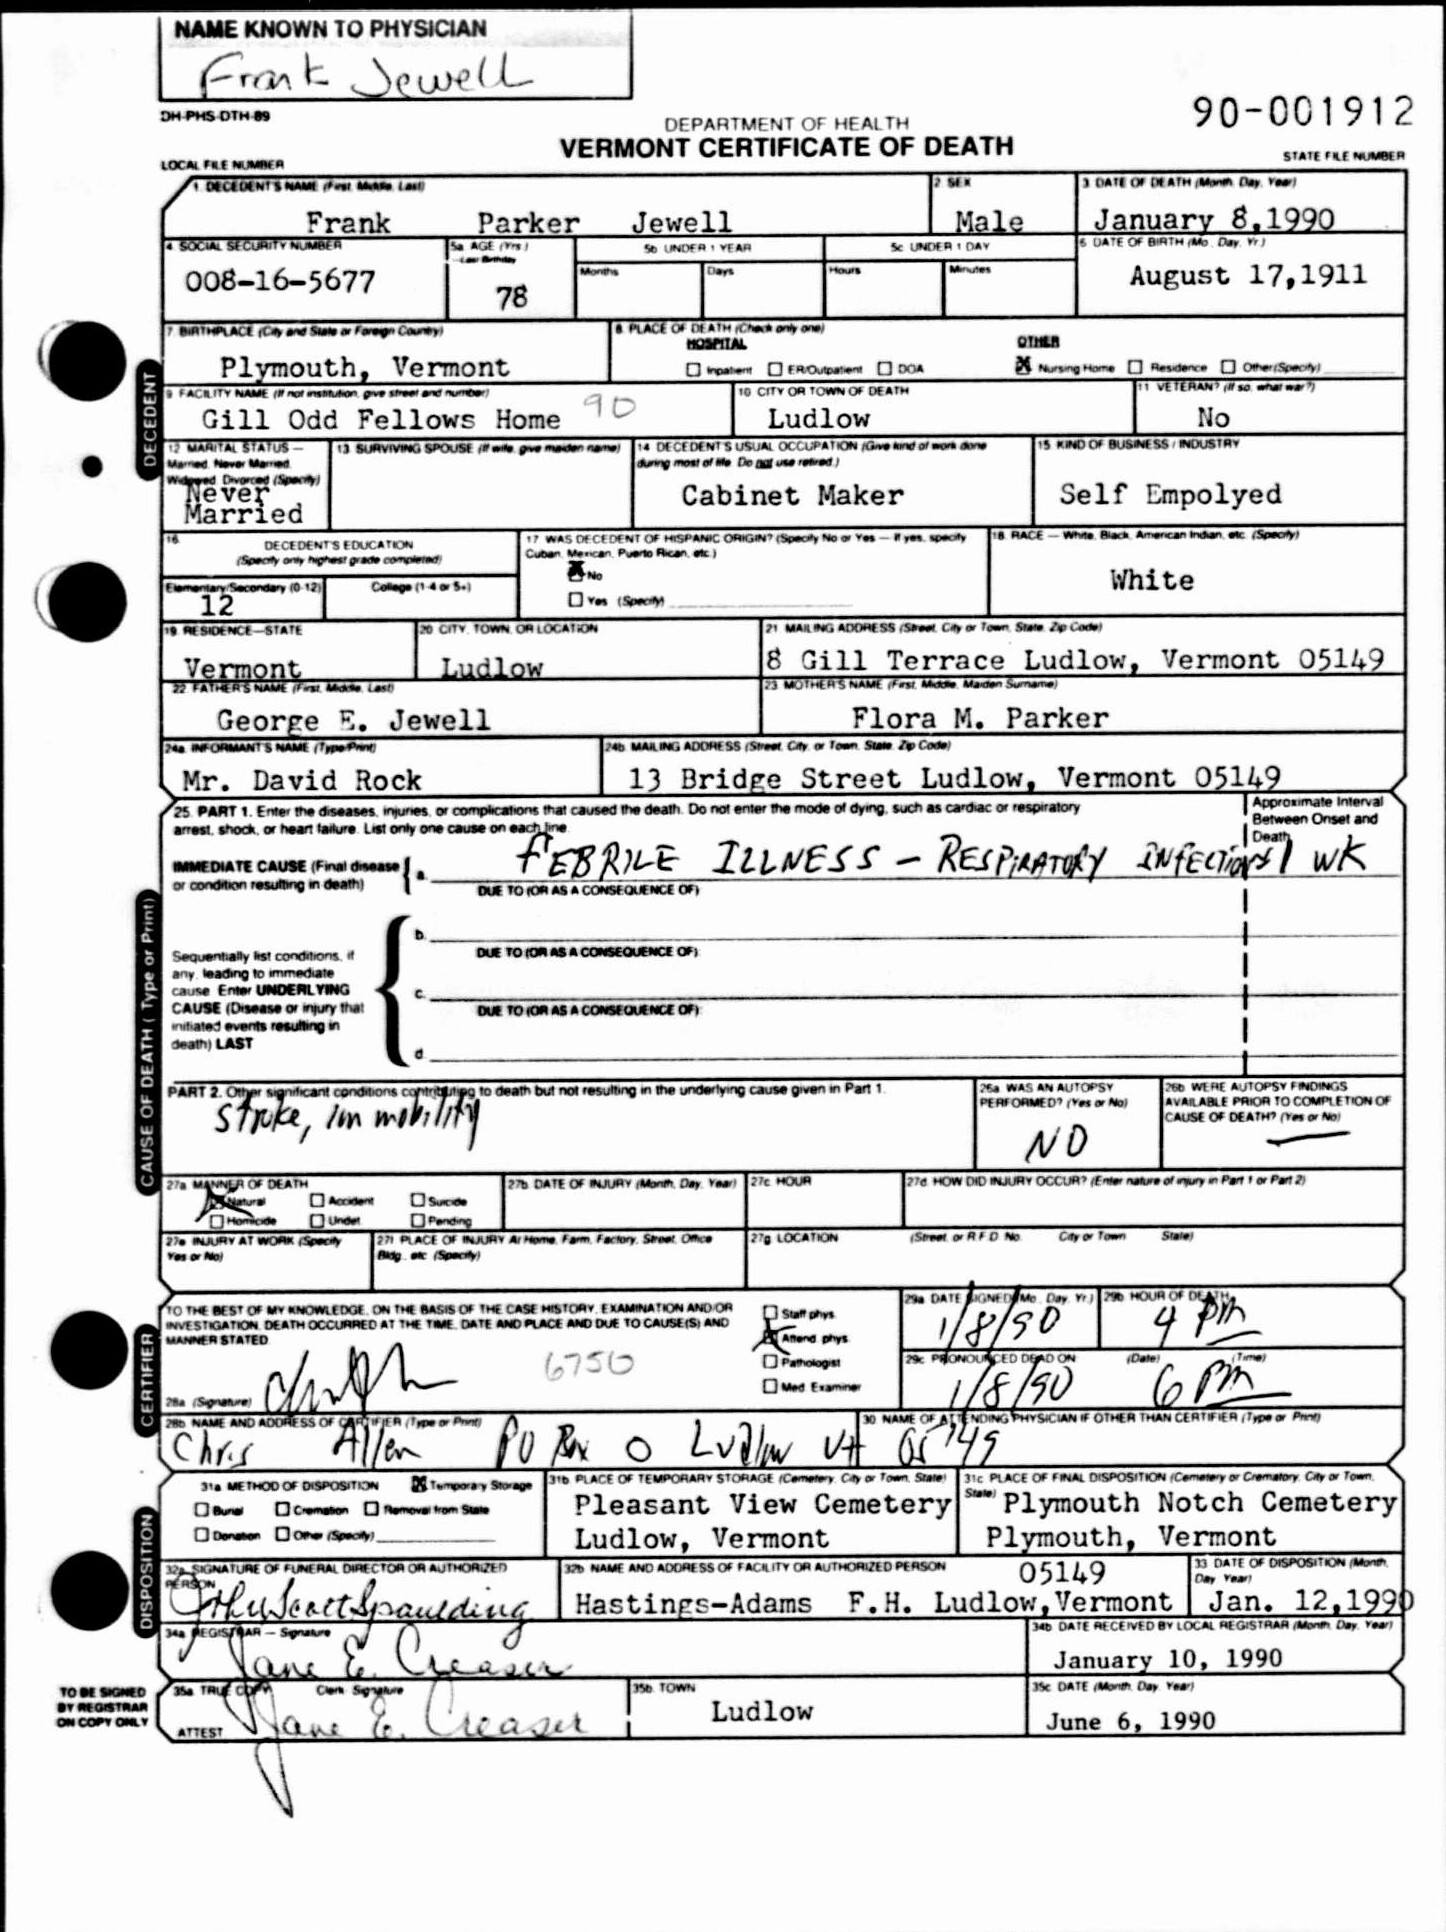 NAME KNOWN TO PHYSICIAN
Frank Jewell
DH-PHS-DTH-89
90-001912
DEPARTMENT OF HEALTH
VERMONT CERTIFICATE OF DEATH
LOCAL FILE NUMBER
STATE FILE NUMBER
1. DECEDENT'S NAME (First, Middle, Last) 2. SEX 3. DATE OF DEATH (Month, Day, Year)
Frank Parker Jewell Male January 8,1990
4. SOCIAL SECURITY NUMBER 5a. AGE (Yrs.) Last Birthday 5b. UNDER 1 YEAR 5c. UNDER 1 DAY 6. DATE OF BIRTH (Mo., Day, Yr.)
Months Days Hours Minutes
008-16-5677 78 August 17,1911
7. BIRTHPLACE (City and State or Foreign Country) 8. PLACE OF DEATH (Check only one)
HOSPITAL OTHER
Plymouth, Vermont Inpatient ER/Outpatient DOA Nursing Home Residence Other (Specify)
9. FACILITY NAME (If not institution, give street and number) 10. CITY OR TOWN OF DEATH 11. VETERAN? (If so, what war?)
Gill Odd Fellows Home 90 Ludlow No
DECEDENT
12. MARITAL STATUS — Married, Never Married, Widowed, Divorced (Specify) 13. SURVIVING SPOUSE (If wife, give maiden name) 14. DECEDENT'S USUAL OCCUPATION (Give kind of work done during most of life. Do not use retired.) 15. KIND OF BUSINESS / INDUSTRY
Never Married Cabinet Maker Self Empolyed
16. DECEDENT'S EDUCATION (Specify only highest grade completed) 17. WAS DECEDENT OF HISPANIC ORIGIN? (Specify No or Yes — If yes, specify Cuban, Mexican, Puerto Rican, etc.) 18. RACE — White, Black, American Indian, etc. (Specify)
No
Yes (Specify)
White
Elementary/Secondary (0-12) College (1-4 or 5+)
12
19. RESIDENCE—STATE 20. CITY, TOWN, OR LOCATION 21. MAILING ADDRESS (Street, City or Town, State, Zip Code)
Vermont Ludlow 8 Gill Terrace Ludlow, Vermont 05149
22. FATHER'S NAME (First, Middle, Last) 23. MOTHER'S NAME (First, Middle, Maiden Surname)
George E. Jewell Flora M. Parker
24a. INFORMANT'S NAME (Type/Print) 24b. MAILING ADDRESS (Street, City, or Town, State, Zip Code)
Mr. David Rock 13 Bridge Street Ludlow, Vermont 05149
25. PART 1. Enter the diseases, injuries, or complications that caused the death. Do not enter the mode of dying, such as cardiac or respiratory
arrest, shock, or heart failure. List only one cause on each line.
Approximate Interval Between Onset and Death
IMMEDIATE CAUSE (Final disease or condition resulting in death)
a. FEBRILE ILLNESS - RESPIRATORY INFECTIONS 1 WK
DUE TO (OR AS A CONSEQUENCE OF):
b.
DUE TO (OR AS A CONSEQUENCE OF):
c.
DUE TO (OR AS A CONSEQUENCE OF):
d.
Sequentially list conditions, if any, leading to immediate cause. Enter UNDERLYING CAUSE (Disease or injury that initiated events resulting in death) LAST
CAUSE OF DEATH (Type or Print)
PART 2. Other significant conditions contributing to death but not resulting in the underlying cause given in Part 1.
stroke, immobility
26a. WAS AN AUTOPSY PERFORMED? (Yes or No)
NO
26b. WERE AUTOPSY FINDINGS AVAILABLE PRIOR TO COMPLETION OF CAUSE OF DEATH? (Yes or No)
—
27a. MANNER OF DEATH 27b. DATE OF INJURY (Month, Day, Year) 27c. HOUR 27d. HOW DID INJURY OCCUR? (Enter nature of injury in Part 1 or Part 2)
Natural Accident Suicide
Homicide Undet. Pending
27e. INJURY AT WORK (Specify Yes or No) 27f. PLACE OF INJURY At Home, Farm, Factory, Street, Office Bldg., etc. (Specify) 27g. LOCATION (Street, or R.F.D. No. City or Town State)
TO THE BEST OF MY KNOWLEDGE, ON THE BASIS OF THE CASE HISTORY, EXAMINATION AND/OR
INVESTIGATION, DEATH OCCURRED AT THE TIME, DATE AND PLACE AND DUE TO CAUSE(S) AND
MANNER STATED.
Staff phys.
Attend. phys.
Pathologist
Med. Examiner
29a. DATE SIGNED (Mo., Day, Yr.) 29b. HOUR OF DEATH
1/8/90 4 pm
29c. PRONOUNCED DEAD ON (Date) (Time)
1/8/90 6 PM
6750
28a. (Signature)
CERTIFIER
28b. NAME AND ADDRESS OF CERTIFIER (Type or Print) 30. NAME OF ATTENDING PHYSICIAN IF OTHER THAN CERTIFIER (Type or Print)
Chris Allen PO Box O Ludlow Vt 05149
31a. METHOD OF DISPOSITION Temporary Storage
Burial Cremation Removal from State
Donation Other (Specify)
31b. PLACE OF TEMPORARY STORAGE (Cemetery, City or Town, State)
Pleasant View Cemetery
Ludlow, Vermont
31c. PLACE OF FINAL DISPOSITION (Cemetery or Crematory, City or Town, State)
Plymouth Notch Cemetery
Plymouth, Vermont
DISPOSITION
32a. SIGNATURE OF FUNERAL DIRECTOR OR AUTHORIZED PERSON
John Scott Spaulding
32b. NAME AND ADDRESS OF FACILITY OR AUTHORIZED PERSON
05149
Hastings-Adams F.H. Ludlow,Vermont
33. DATE OF DISPOSITION (Month, Day, Year)
Jan. 12,1990
34a. REGISTRAR — Signature
Jane E. Creaser
34b. DATE RECEIVED BY LOCAL REGISTRAR (Month, Day, Year)
January 10, 1990
TO BE SIGNED
BY REGISTRAR
ON COPY ONLY
35a. TRUE COPY Clerk Signature
ATTEST Jane E. Creaser
35b. TOWN
Ludlow
35c. DATE (Month, Day, Year)
June 6, 1990